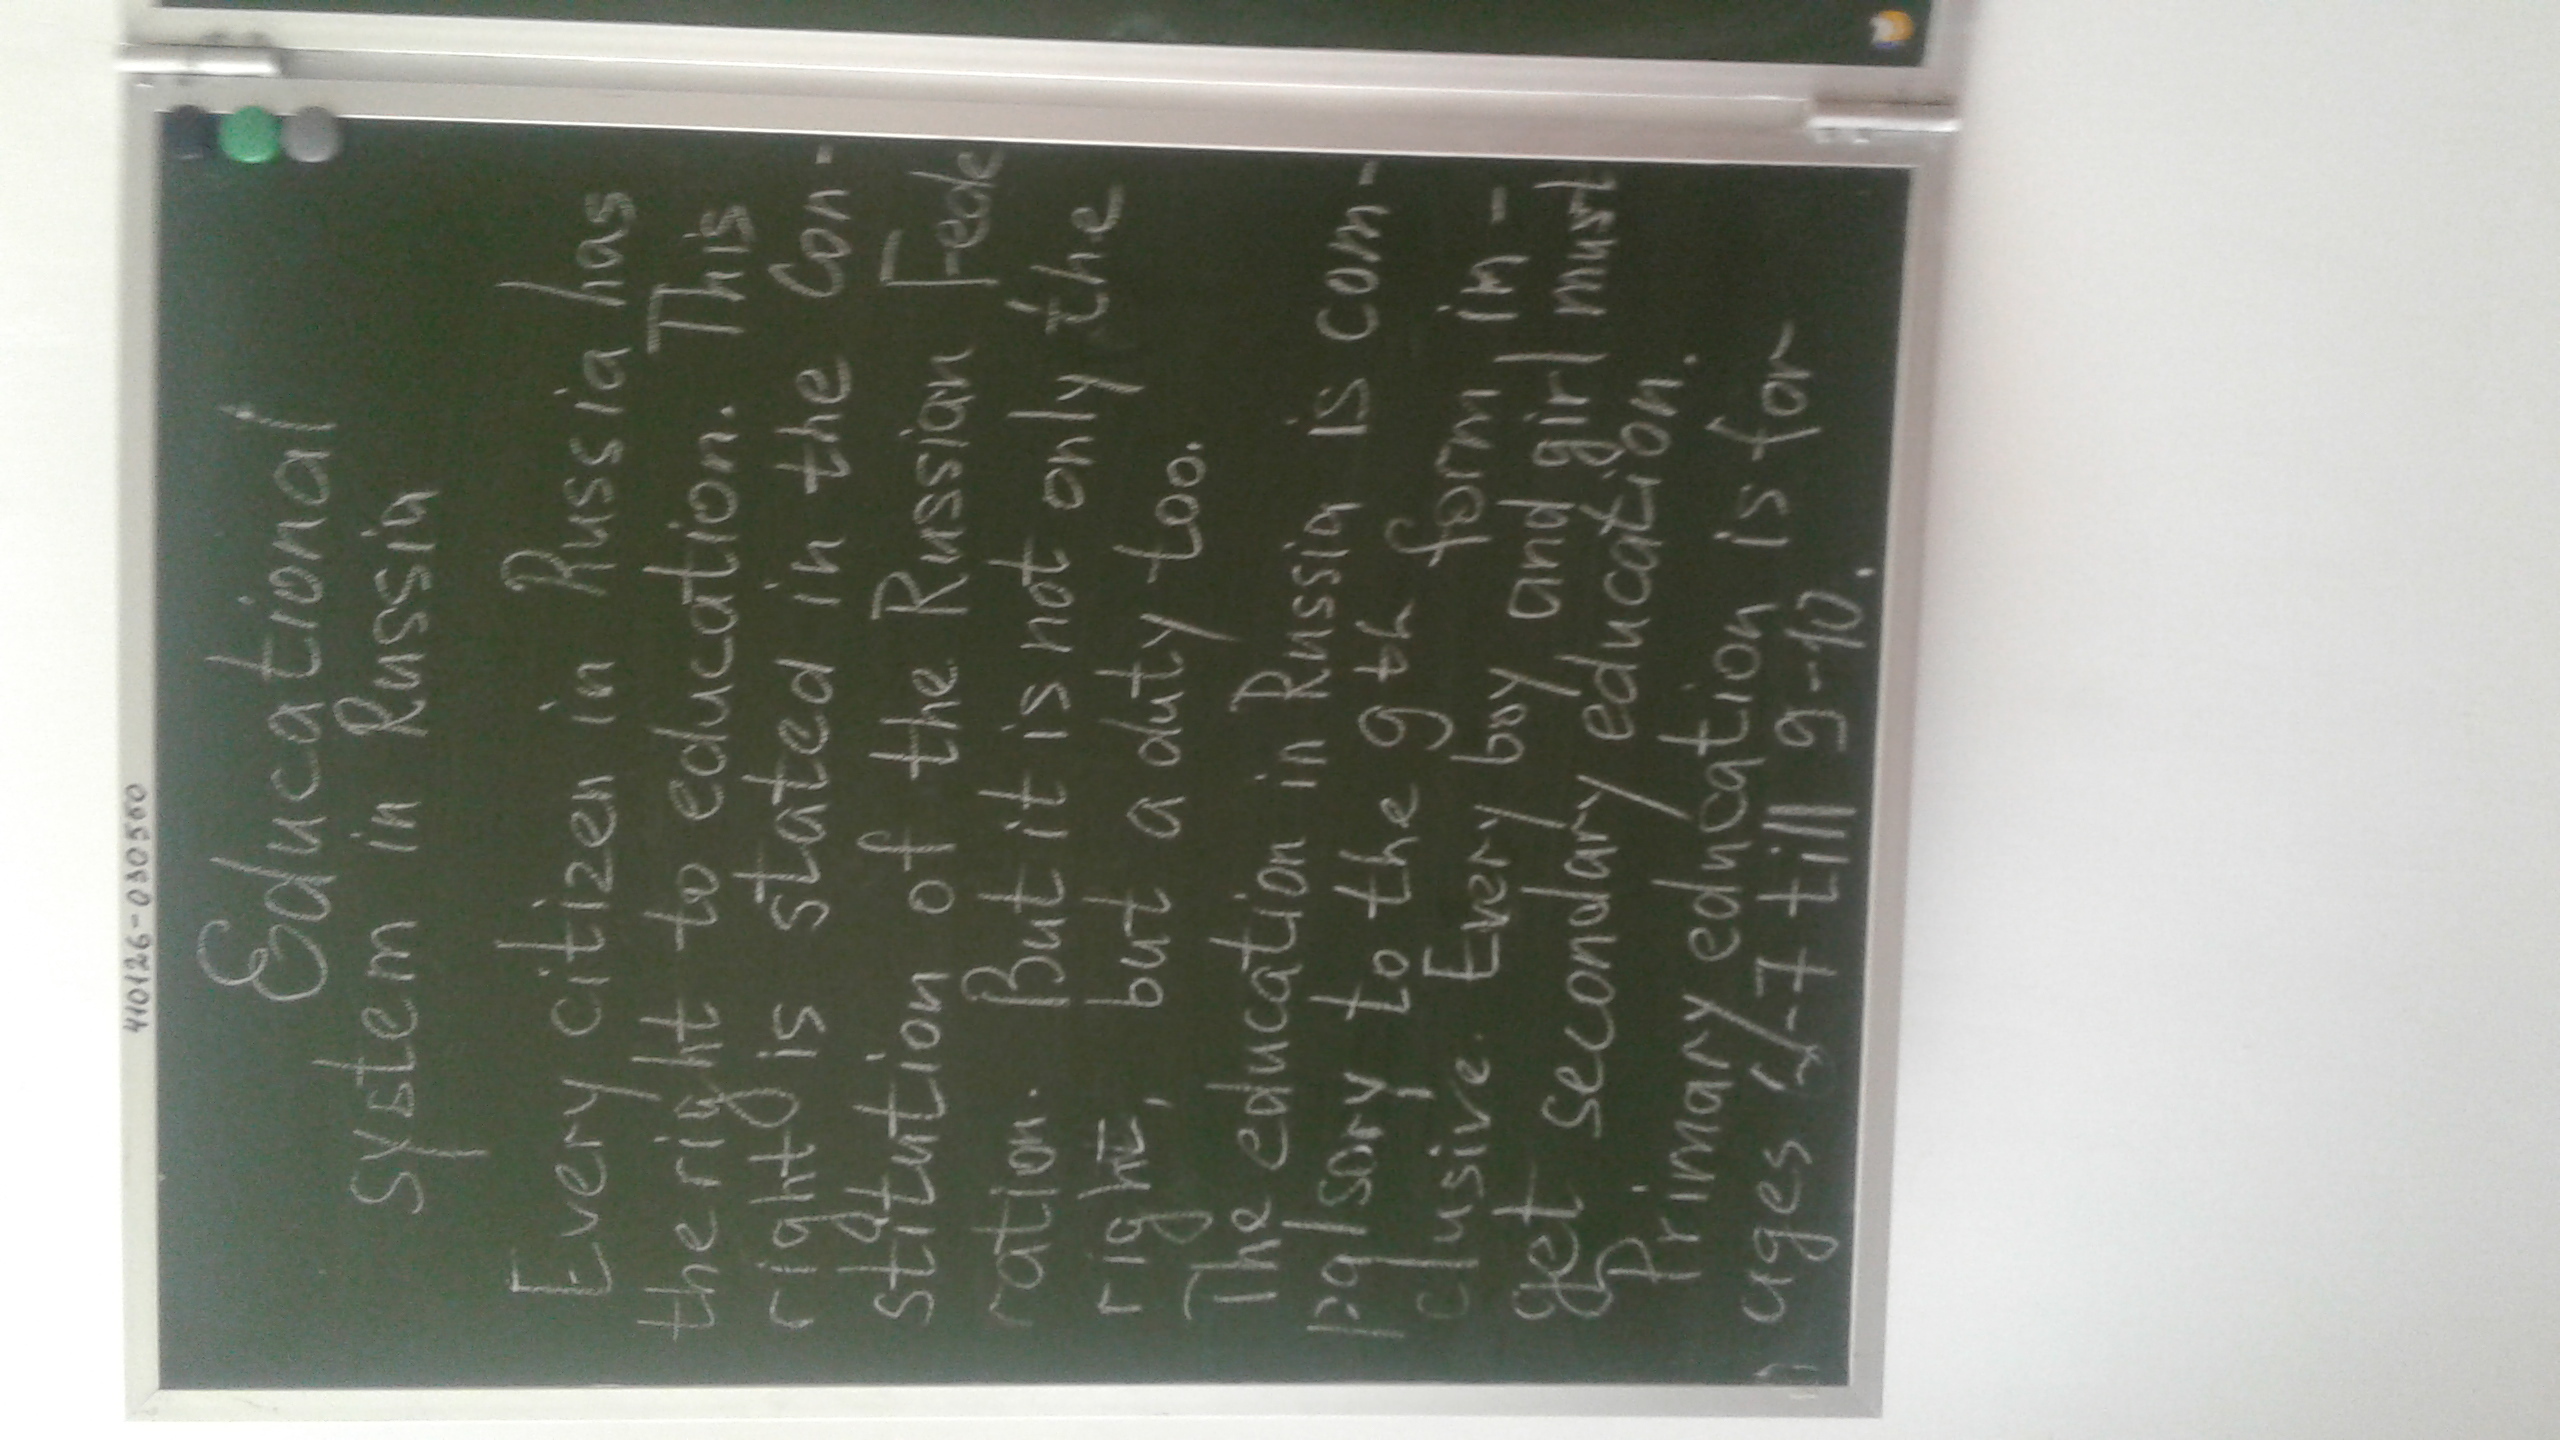 410126-030550
Educational
system in Russia
Every citizen in Russia has
the right to education. This
right is stated in the Con-
stitution of the Russian Fede
ration. But it is not only the
right, but a duty too.
The education in Russia is com-
pulsory to the 9th form in-
clusive. Every boy and girl must
get secondary education.
Primary education is for
ages 6-7 till 9-10.